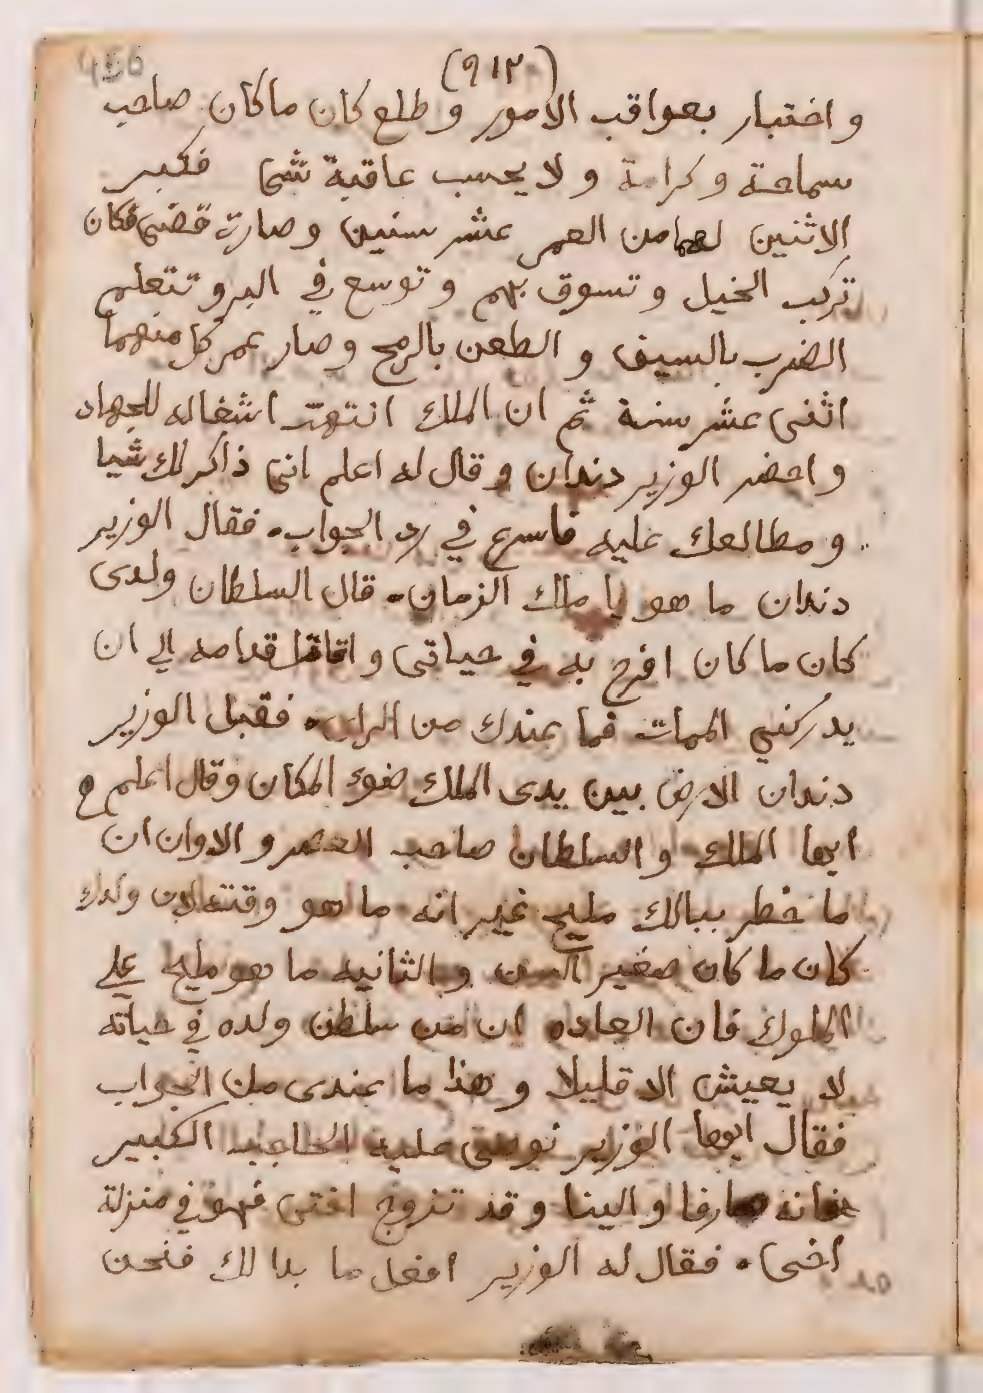 (٩١٢)
456
و اختبار بعواقب الامور و طلع كان ماكان صاحب
سماحة و كرامة و لا يحسب عاقبة شى فكبر
الاثنين لهما من العمر عشر سنين و صارة قضى فكان
تركب الخيل و تسوق بهم و توسع في البر و تتعلم
الضرب بالسيف و الطعن بالرمح و صار عمر كل منهما
اثنى عشر سنة ثم ان الملك انتهت اشغاله للجهاد
و احضر الوزير دندان و قال له اعلم انى ذاكر لك شيا
و مطالعك عليه فاسرع في رد الجواب. فقال الوزير
دندان ما هو يا ملك الزمان. قال السلطان ولدى
كان ما كان افرح به في حياتى و اقاتل قدامه الي ان
يدركني الممات فما عندك من الراى. فقبل الوزير
دندان الارض بين يدى الملك ضوء المكان وقال اعلم
ايها الملك و السلطان صاحب العصر و الاوان ان
ما خطر ببالك مليح غير انه ما هو وقته لان ولدك
كان ما كان صغير السن و الثانيه ما هو مليح علي
الملوك فان العاده ان من سلطن ولده في حياته
لا يعيش الا قليلا و هذا ما عندى من الجواب
فقال ايها الوزير نوصى عليه الحاجب الكبير
فانه صارفا و الينا و قد تزوج اختى فهو في منزلة
اخى. فقال له الوزير افعل ما بدا لك فنحن